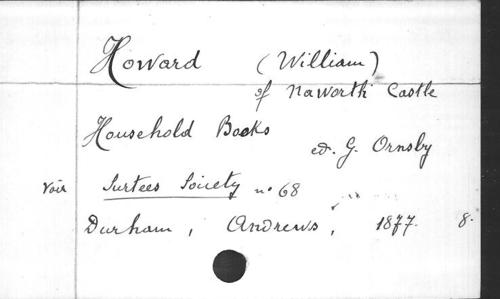 Howard (William)
of Naworth Castle
Household Books
ed. G. Ornsby
Voir Surtees Society no 68
Durham, Andrews, 1877. 8.